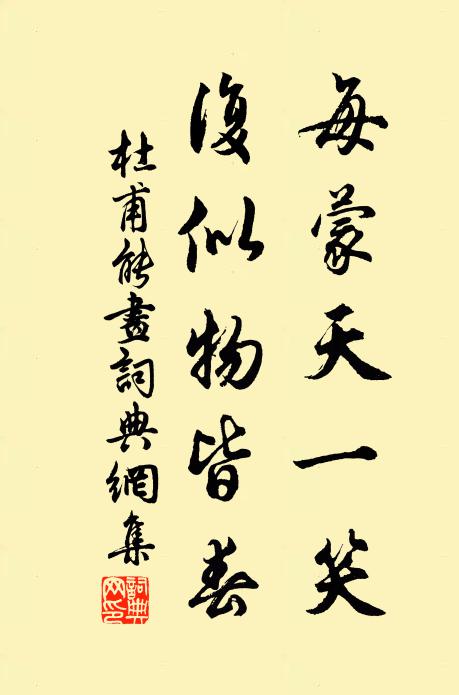 每蒙天一笑
復似物皆春
杜甫能畫詞典網集
詞典
網印